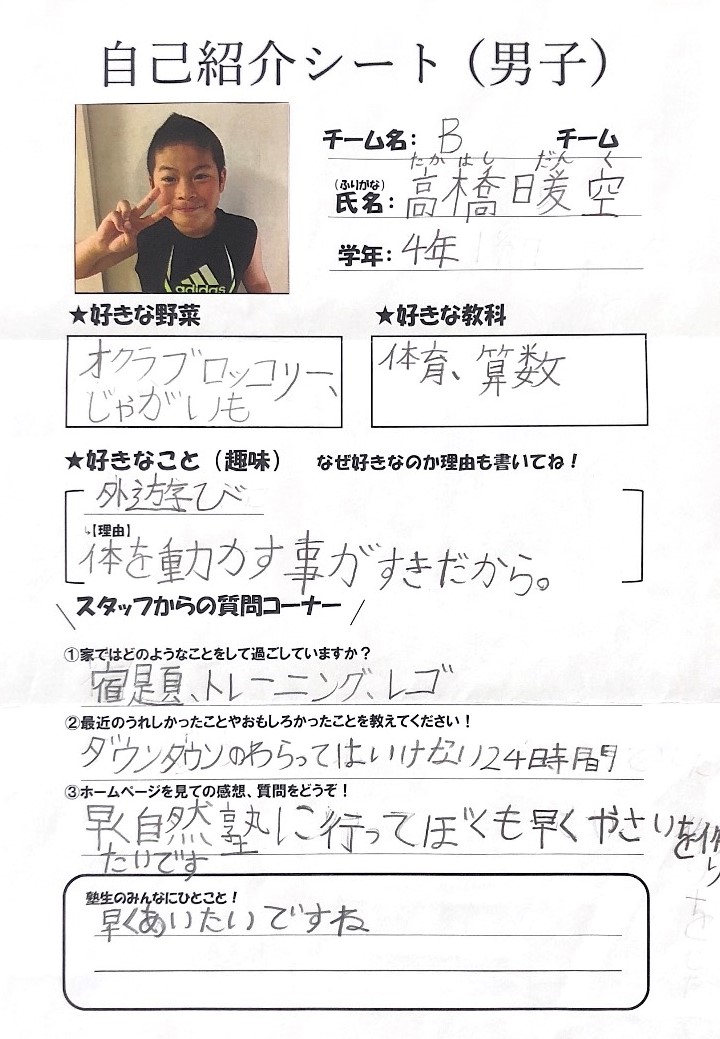 自己紹介シート（男子）
adidas
チーム名： B チーム
たかはし だんく
（ふりがな）
氏名：高橋暖空
学年：4年
★好きな野菜
オクラブロッコリー、
じゃがいも
★好きな教科
体育、算数
★好きなこと（趣味） なぜ好きなのか理由も書いてね！
外遊び
↳【理由】
体を動かす事がすきだから。
＼スタッフからの質問コーナー／
①家ではどのようなことをして過ごしていますか？
宿題、トレーニング、レゴ
②最近のうれしかったことやおもしろかったことを教えてください！
ダウンタウンのわらってはいけない24時間
③ホームページを見ての感想、質問をどうぞ！
早く自然塾に行ってぼくも早くやさいを作り
たいです
塾生のみんなにひとこと！
早くあいたいですね